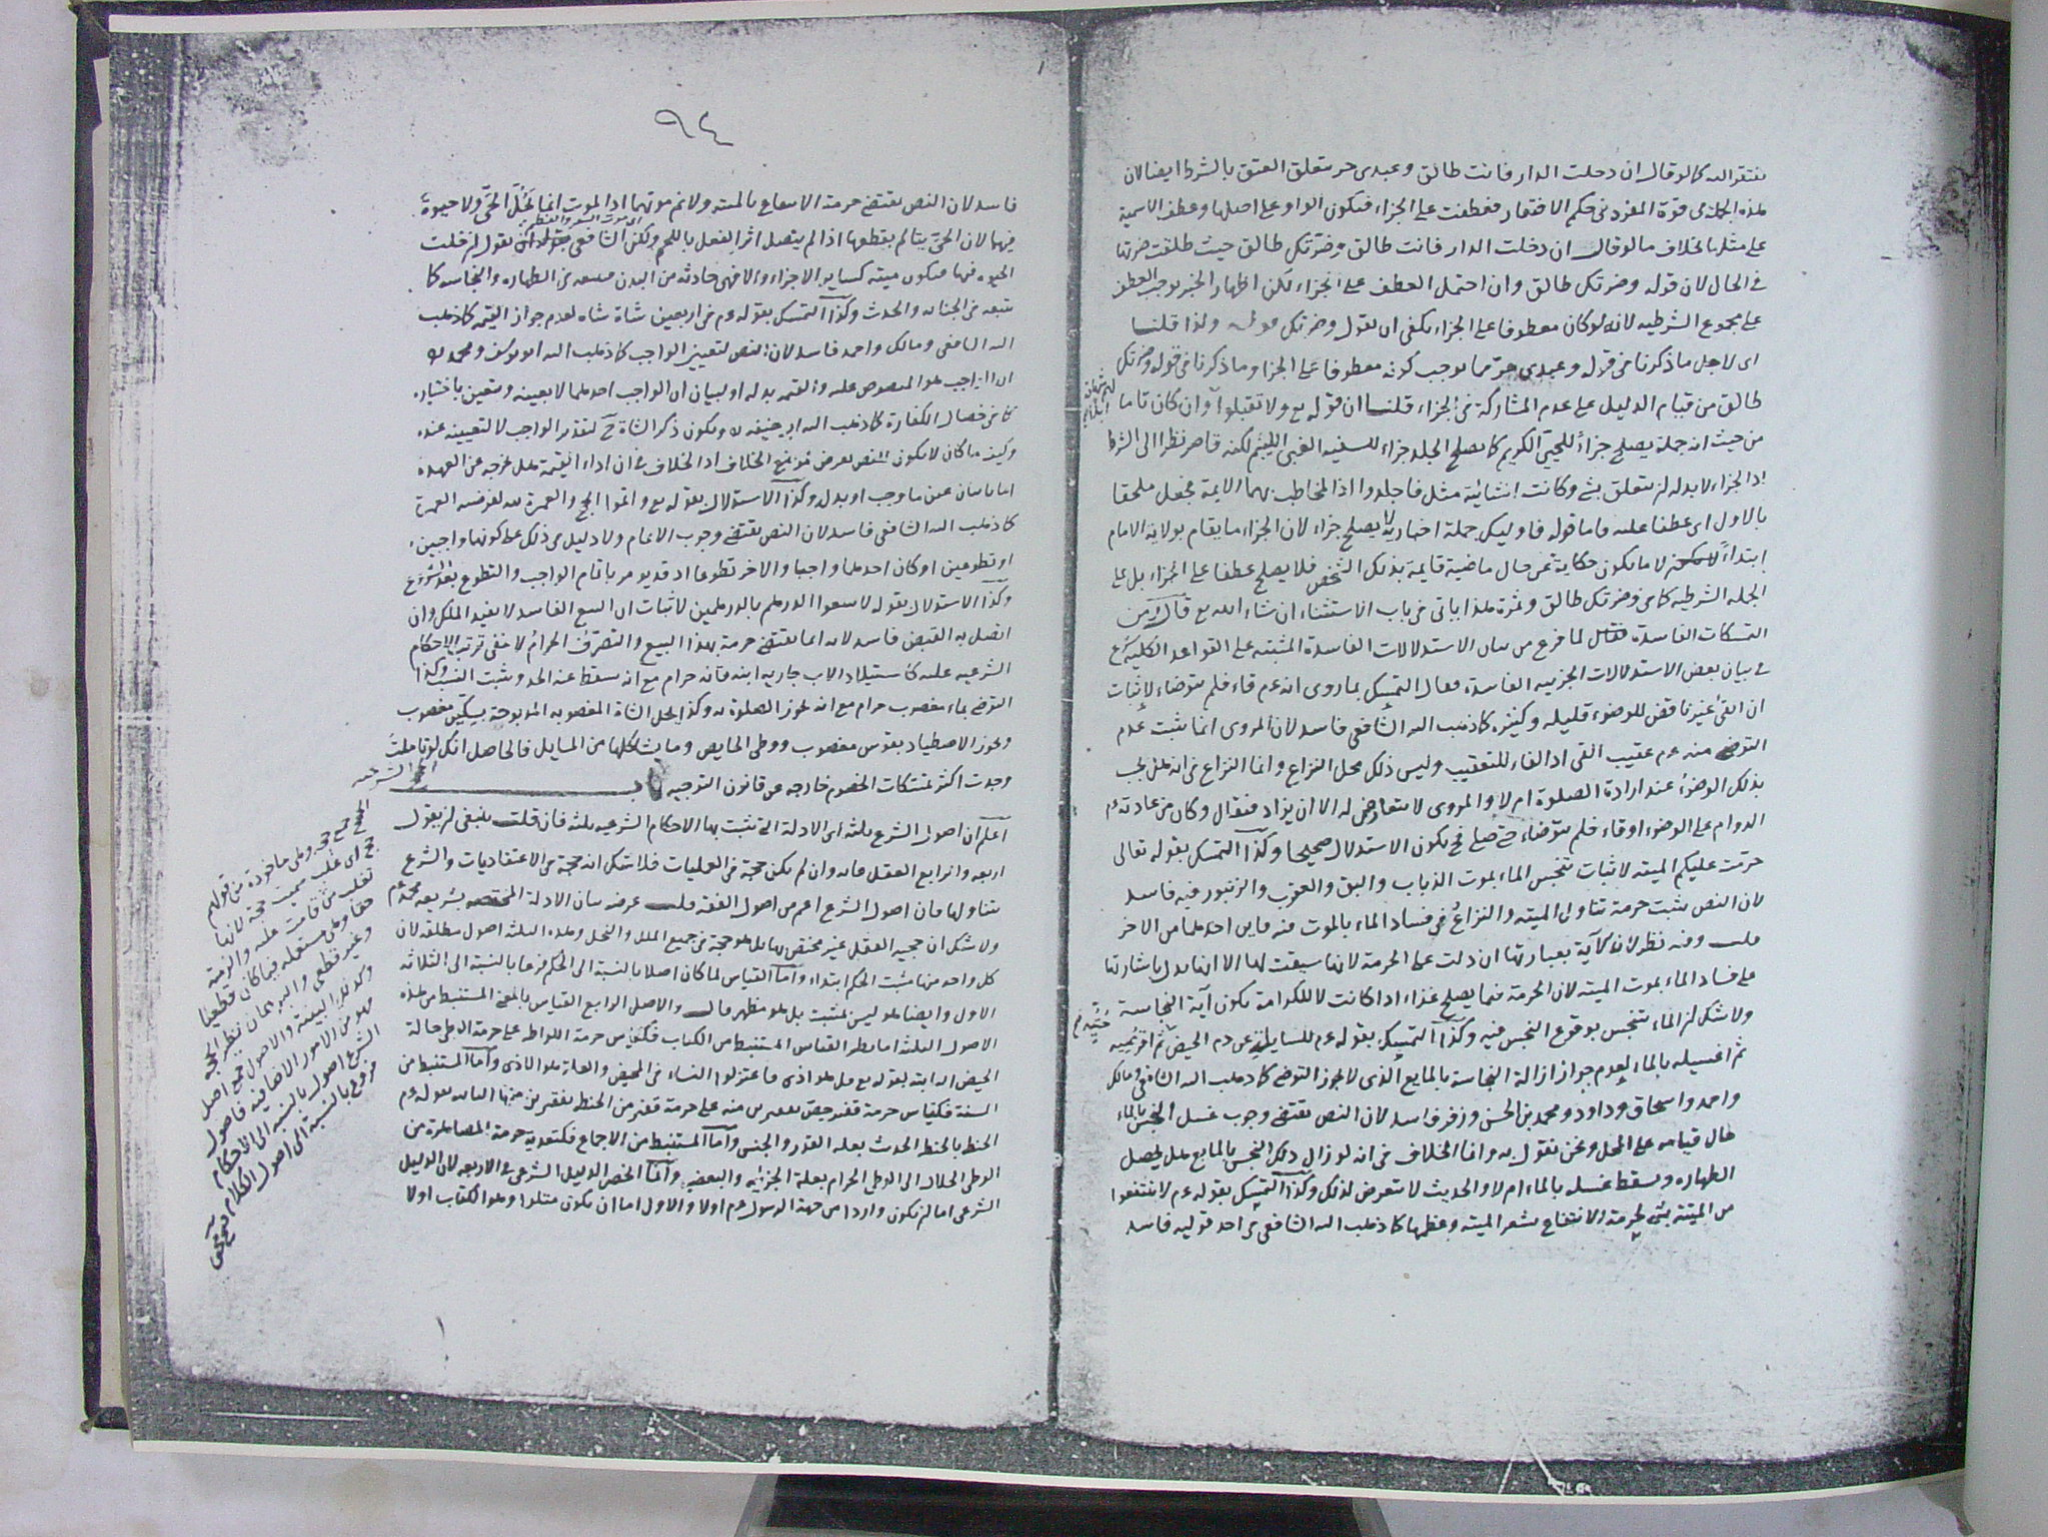 يفتقر اليه كما لو قال ان دخلت الدار فانت طالق وعبدى حر يتعلق العتق بالشرط ايضا لان
هذه الجملة فى قوة المفرد فى حكم الافتقار فعطفت على الجزاء فيكون الواو على اصلها وعطف الاسمية
على مثلها بخلاف ما لو قال ان دخلت الدار فانت طالق وضرتك طالق حيث طلقت ضرتها
فى الحال لان قوله وضرتك طالق وان احتمل العطف على الجزاء لكن اظهار الخبر يوجب العطف
على مجموع الشرطيه لانه لو كان معطوفا على الجزاء يكفى ان يقول وضرتك ولذا قلنا
اى لاجل ما ذكرنا فى قوله وعبدى حر مما يوجب كونه معطوفا على الجزا وما ذكرنا فى قوله وضرتك
طالق من قيام الدليل على عدم المشاركة فى الجزاء قلنا ان قوله تع ولا تقبلوا وان كان تاما
من حيث انه جملة يصلح جزاء للحيى الكريم كما يصلح الجلد جزاء للسفيه الغبى اللئيم لكنه قاصر نظرا الى الشرط
اذ الجزاء لا بد له لن يتعلق بشئ وكانت انشائية مثل فاجلدوا اذ المخاطب بهما الايمة فجعل ملحقا
بالاول اى عطفا عليه فاما قوله فاوليك جملة اخبارية لا يصلح جزاء لان الجزاء ما يقام بولاية الامام
ابتداء لا ما يكون حكاية عن حال ماضية قايمة بذلك الشخص فلا يصلح عطفا على الجزاء بل على
الجملة الشرطيه كما فى وضرتك طالق وثمرة هذا ياتى فى باب الاستثناء ان شاء الله تع قال ومن
التمسكات الفاسدة لما فرغ من بيان الاستدلالات الفاسدة المثبتة على القواعد الكلية شرع
فى بيان بعض الاستدلالات الجزييه الفاسدة فقال التمسك بما روى انه عم قاء فلم يتوضاء لاثبات
ان القئ غير ناقض للوضوء قليله وكثيره كما ذهب اليه الشافعى فاسد لان المروى انما يثبت عدم
التوضى منه عم عقيب القى اذ الفاء للتعقيب وليس ذلك محل النزاع وانما النزاع فى انه هل يجب
بذلك الوضوء عند ارادة الصلوة ام لا والمروى لا تعارض له الا ان يزاد فيقال وكان من عادته عم
الدوام على الوضوء او قاء فلم يتوضاء حتى صلى فح يكون الاستدلال صحيحا وكذا التمسك بقوله تعالى
حرمت عليكم الميته لاثبات تنجس الماء بموت الذباب والبق والعقرب والزنبور فيه فاسد
لان النص يثبت حرمة تناول الميته والنزاع فى فساد الماء بالموت فيه فاين احدهما من الاخر
قلت وفيه نظر لان الآية بعبارتها ان دلت على الحرمة لانها سيقت لها الا انها تدل باشارتها
على فساد الماء بموت الميته لان الحرمة فيما يصلح غذاء اذا كانت لا للكرامة يكون آية النجاسة
ولا شك لن الماء يتنجس بوقوع النجس فيه وكذا التمسك بقوله عم للسايلة عن دم الحيض ثم اقرصيه
ثم اغسليه بالماء لعدم جواز ازالة النجاسة بالمايع الذى لا يجوز التوضى كما ذهب اليه الشافعى ومالك
واحمد واسحاق وداود ومحمد بن الحسن وزفر فاسد لان النص يقتضى وجوب غسل النجس بالماء
حال قيامه على المحل ونحن نقول به وانما الخلاف فى انه لو زال ذلك النجس بالمايع هل يحصل
الطهاره ويسقط غسله بالماء ام لا والحديث لا يتعرض لذلك وكذا التمسك بقوله عم لا تنتفعوا
من الميتة بشئ لحرمة الانتفاع بشعر الميته وعظمها كما ذهب اليه الشافعى فى احد قوليه فاسد
٩٤
فاسد لان النص يقتضى حرمة الانتفاع بالميته ولا نم موتهما اذ الموت انما يحل الحى ولا حيوة
فيهما لان الحى يتالم بقطعها اذا لم يتصل اثر الفعل باللحم ولكن الشافعى يقول لن حلت
الحيوه فيها فيكون ميته كساير الاجزاء والا فهى حادثه من البدن فى الطهاره والنجاسه كما
يتبعه فى الجنابه والحدث وكذا التمسك بقوله عم فى اربعين شاة شاه لعدم جواز القيمه كما ذهب
اليه الشافعى ومالك واحمد فاسد لان النص لتعيين الواجب كما ذهب اليه ابو يوسف ومحمد
ان الواجب هو المنصوص عليه والقيمه بدله او لبيان ان الواجب احدهما لا بعينه ويتعين باختياره
كما فى خصال الكفارة كما ذهب اليه ابو حنيفه ويكون ذكر الشاة ح لتقدير الواجب لا لتعيينه عنده
وكيف ما كان لا يكون للنص تعرض لموضع الخلاف اذ الخلاف فى ان اداء القيمة هل يخرجه عن العهده
اما باتيان عين ما وجب او بدله وكذا الاستدلال بقوله تع واتموا الحج والعمرة لله لفرضيه العمرة
كما ذهب اليه الشافعى فاسد لان النص يقتضى وجوب الاتمام ولا دليل فى ذلك على كونهما واجبين
او تطوعين او كان احدهما واجبا والاخر تطوعا اذ قد يومر باتمام الواجب والتطوع بعد الشروع
وكذا الاستدلال بقوله لا تبيعوا الدرهم بالدرهمين لاثبات ان البيع الفاسد لا يفيد الملك وان
اتصل به القبض فاسد لانه انما يقتضى حرمة هذا البيع والتصرف الحرام لا ينفى ترتب الاحكام
الشرعيه عليه كاستيلاد الاب جارية ابنه فانه حرام مع انه يسقط عنه الحد ويثبت النسب وكذا
التوضى بماء مغصوب حرام مع انه يجوز الصلوة به وكذا يحل الشاة المغصوبه المذبوحة بسكين مغصوب
ويجوز الاصطياد بقوس مغصوب ووطى الحايض وما يشاكلها من المسايل فالحاصل انك لو تاملت
وجدت اكثر تمسكات الخصوم خارجه عن قانون التوجيه باب الحجج الشرعيه
اعلم ان اصول الشرع ثلثه اى الادلة التى تثبت بها الاحكام الشرعيه ثلثة فان قلت ينبغى لن يقول
اربعه والرابع العقل فانه وان لم يكن حجة فى العمليات فلا شك انه حجة فى الاعتقاديات والشرع
يتناولها فان اصول الشرع اعم من اصول الفقه قلت غرضه بيان الادلة المختصه بشريعه محمد عم
ولا شك ان حجيه العقل غير مختص بها بل هو حجة فى جميع الملل والنحل وهذه الثلثه اصول مطلقه لان
كل واحد منها مثبت الحكم ابتداء واما القياس لما كان اصلا بالنسبة الى الحكم فرعا بالنسبة الى الثلاثه
الاول وايضا هو ليس بمثبت بل هو مظهر قال والاصل الرابع القياس بالمعنى المستنبط من هذه
الاصول الثلثه اما نظر القياس المستنبط من الكتاب فكقياس حرمة اللواطه على حرمة الوطى حالة
الحيض الثابته بقوله تع قل هو اذى فاعتزلوا النساء فى المحيض والعلة هو الاذى واما المستنبط من
السنة فكقياس حرمة قفيز جص بقفيزين منه على حرمة قفيز من الحنطه بقفيزين منها الثابته بقوله عم
الحنطه بالحنطه الحديث بعله القدر والجنس واما المستنبط من الاجماع فكتعدية حرمة المصاهرة من
الوطى الحلال الى الوطى الحرام بعلة الجزئيه والبعضيه وانما انحصر الدليل الشرعى فى الاربعه لان الدليل
الشرعى اما لن يكون واردا من جهة الرسول عم اولا والاول اما ان يكون متلوا وهو الكتاب اولا
الحجج جمع حجه وهى ماخوذة من قولهم
حج اى غلب سميت حجة لانها
تغلب من قامت عليه والزمته
حقا وهى مستعمله فيما كان قطعيا
وغير قطعى والبرهان نظير الحجه
وكذلك البينه والاصول جمع اصل
وهو من الامور الاضافيه فاصول
الشرع اصول بالنسبه الى الاحكام
فروع بالنسبة الى اصول الكلام